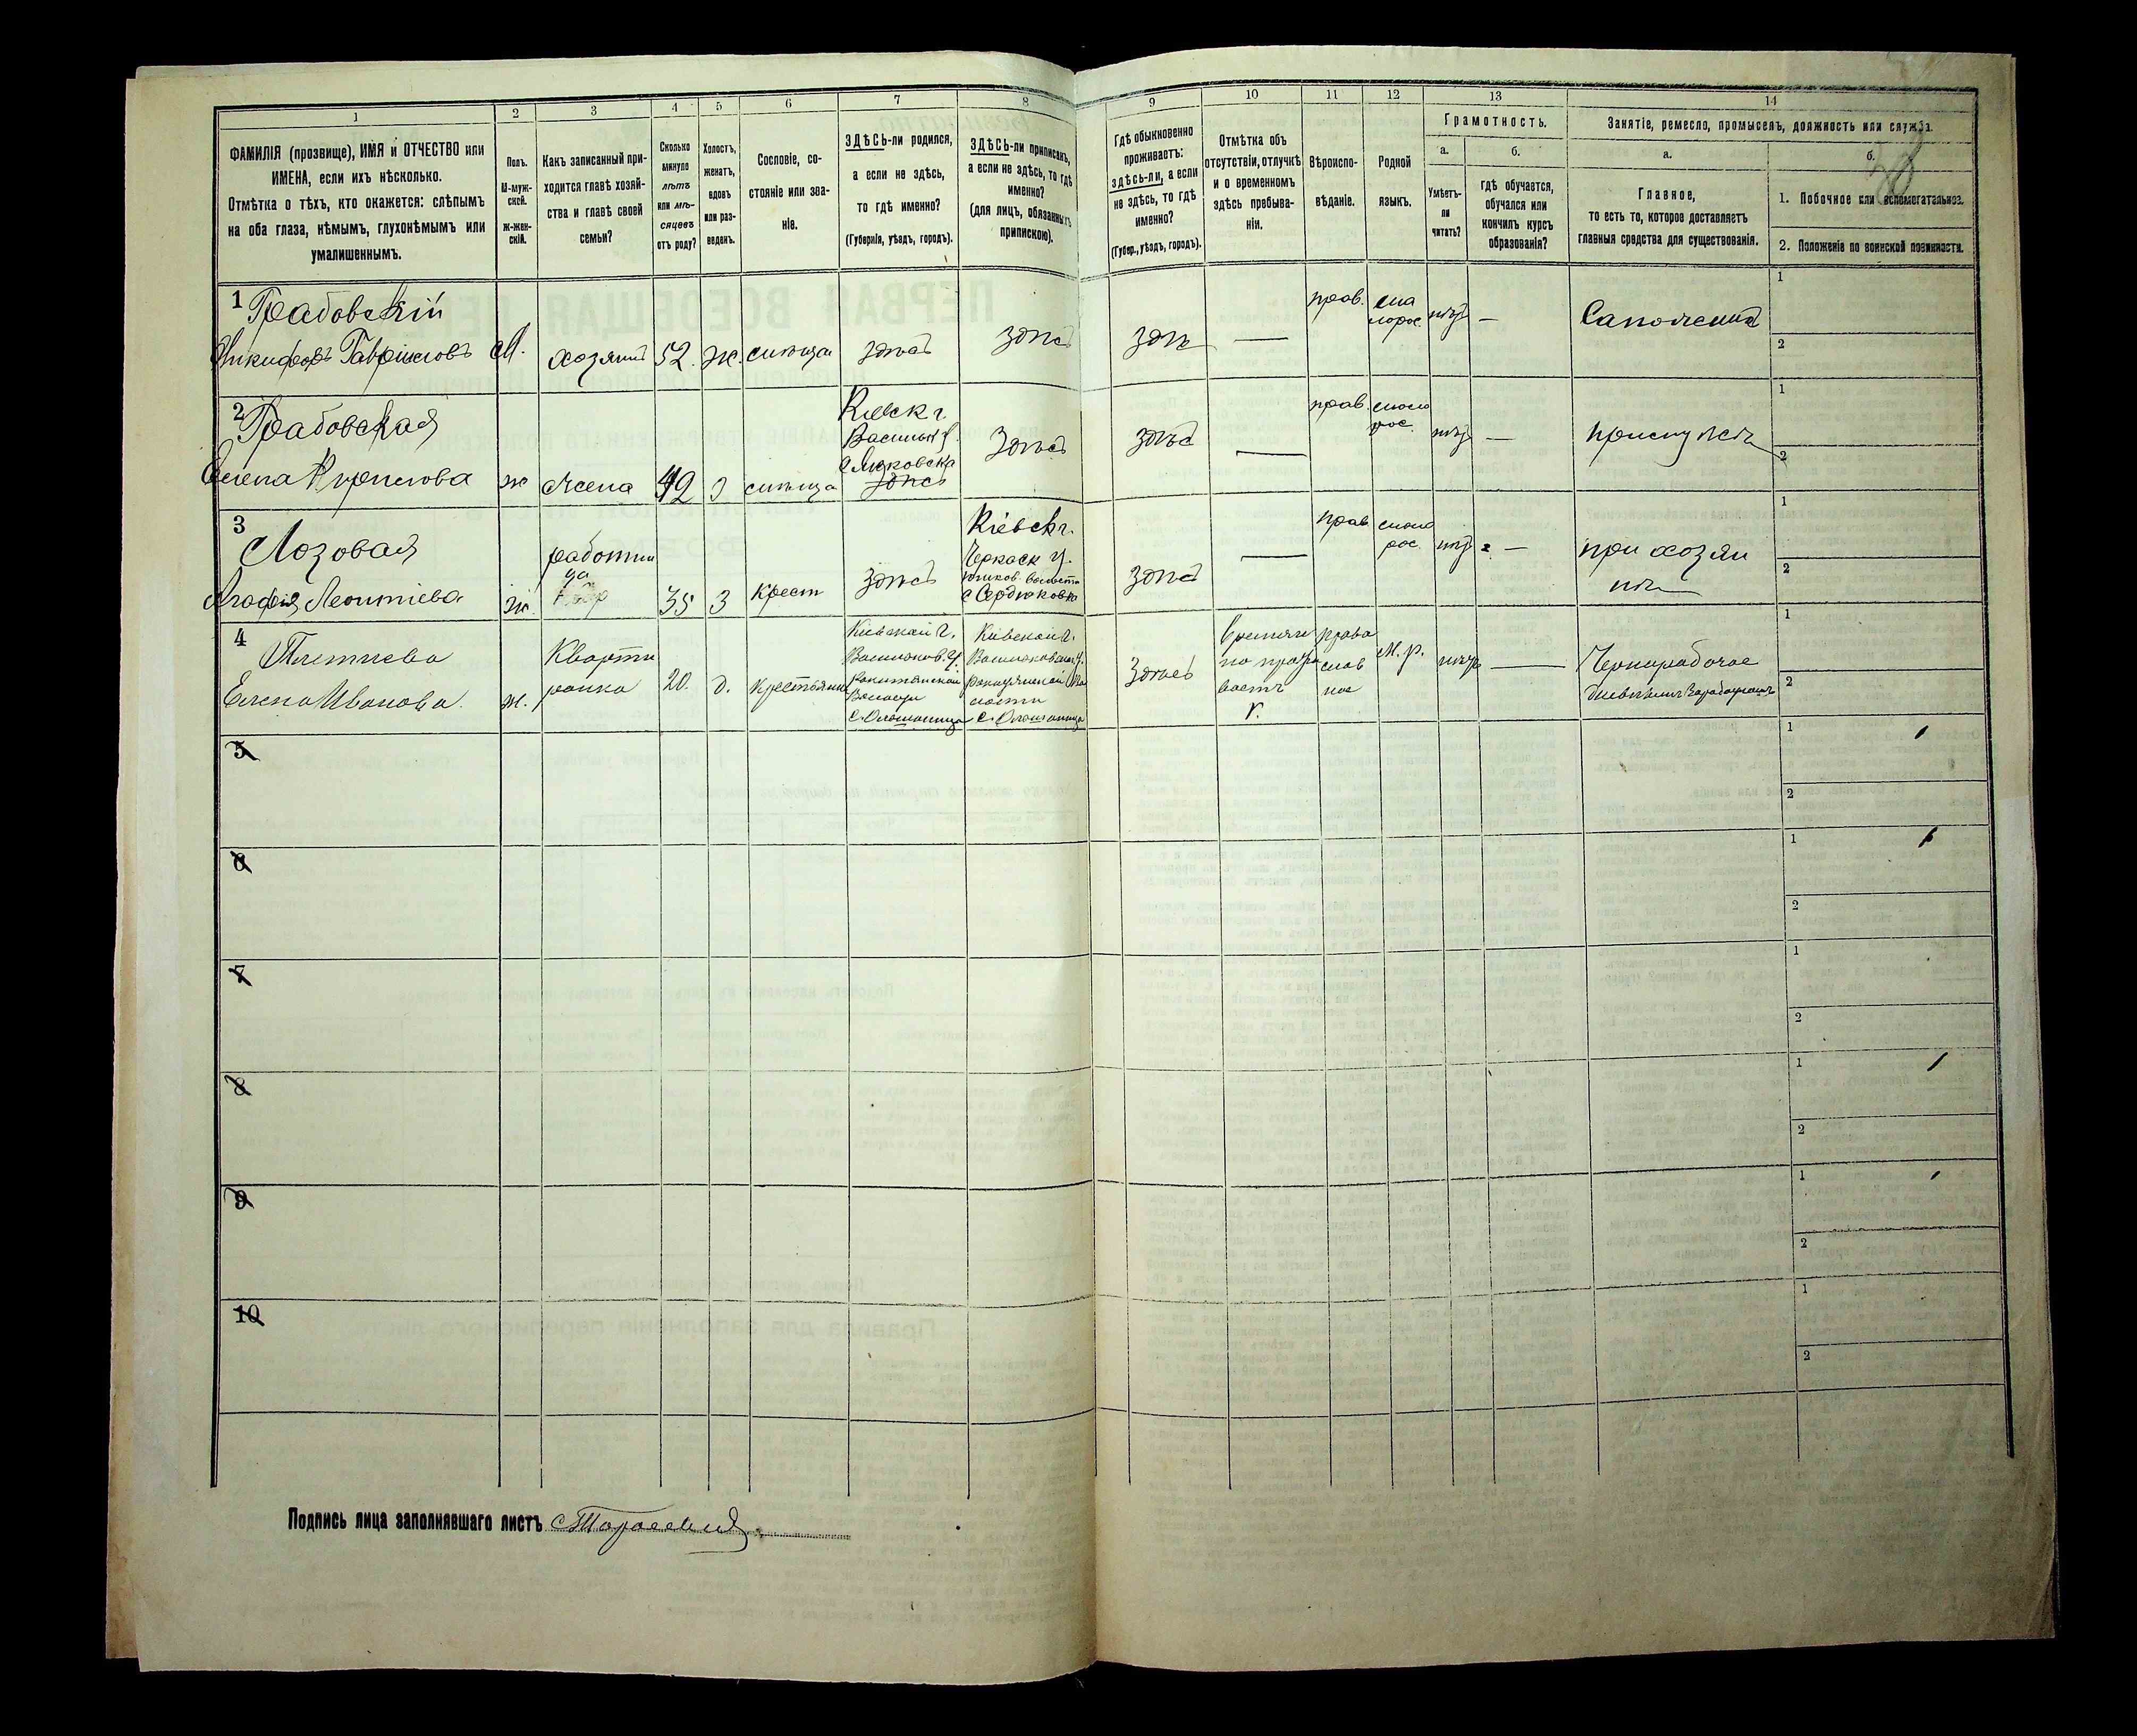 1 2 3 4 5 6 7 8 9 10 11 12 13 14
ФАМИЛІЯ (прозвище), ИМЯ и ОТЧЕСТВО или
ИМЕНА, если ихъ нѣсколько.
Отмѣтка о тѣхъ, кто окажется: слѣпымъ
на оба глаза, нѣмымъ, глухонѣмымъ или
умалишеннымъ.
Полъ.
М-муж-
ской.
Ж-жен-
скій.
Какъ записанный при-
ходится главѣ хозяй-
ства и главѣ своей
семьи?
Сколько
минуло
лѣтъ
или мѣ-
сяцевъ
отъ роду?
Холостъ,
женатъ,
вдовъ
или раз-
веденъ.
Сословіе, со-
стояніе или зва-
ніе.
ЗДѢСЬ-ли родился,
а если не здѣсь,
то гдѣ именно?
(Губернія, уѣздъ, городъ).
ЗДѢСЬ-ли приписанъ,
а если не здѣсь, то гдѣ
именно?
(для лицъ, обязанныхъ
припискою).
Гдѣ обыкновенно
проживаетъ:
здѣсь-ли, а если
не здѣсь, то гдѣ
именно?
(Губер., уѣздъ, городъ).
Отмѣтка объ
отсутствіи, отлучкѣ
и о временномъ
здѣсь пребыва-
ніи.
Вѣроиспо-
вѣданіе.
Родной
языкъ.
Грамотность.
а.
Умѣетъ-
ли
читать?
б.
Гдѣ обучается,
обучался или
кончилъ курсъ
образованія?
Занятіе, ремесло, промыселъ, должность или служба.
а.
Главное,
то есть то, которое доставляетъ
главныя средства для существованія.
б.
1. Побочное или вспомогательное.
2. Положеніе по воинской повинности.
38
1 Грабовскій
Никифоръ Гавриловъ М. хозяинъ 52. ж. здѣсь здѣсь здѣсь — прав. мало
рос. нѣтъ — Сапожникъ
1
2
2 Грабовская
Елена Кирилова ж жена 42 з
Кіевск г.
Васильк у.
здѣсь
здѣсь здѣсь — прав. мало
рос. нѣтъ —
1
2
3 Лозовая
Агафія Леонтіева ж. работни
ца 35 з крест здѣсь
Кіевск г.
Черкаск у.
с Сердюковка
здѣсь — прав мало
рос. нѣтъ — при хозяи
нѣ
1
2
4
Елена Иванова. ж. Кварти
рантка 20. д. крестьянка
Кіевской г.
Васильков. у.
Рокитянской
Волости
с. Ольшаница
Кіевской г.
Васильковскаго у.
Рокитянской Во
лости
с. Ольшаница
Здѣсь
православ
ное
М. р. нѣтъ — Чернорабочая
1
2
5 1 2
6 1 2
7 1 2
8 1 2
9 1 2
10 1 2
Подпись лица заполнявшаго листъ